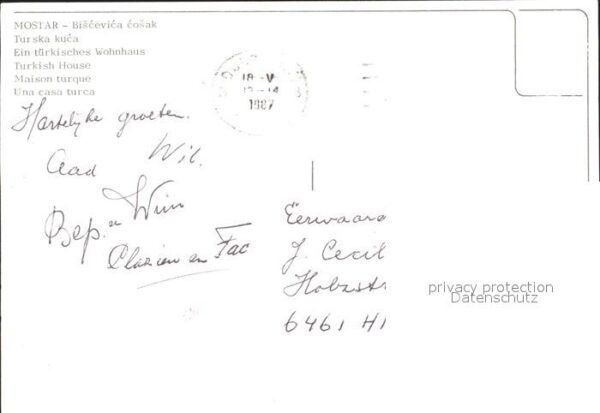 MOSTAR – Bišćevića ćošak
Turska kuća
Ein türkisches Wohnhaus
Turkish House
Maison turque
Una casa turca
18 V
1987
Hartelijke groeten.
Aad Wil.
Bep. en Wim
en Jac
Eerwaard
J. Cecil
6461 H
privacy protection
Datenschutz